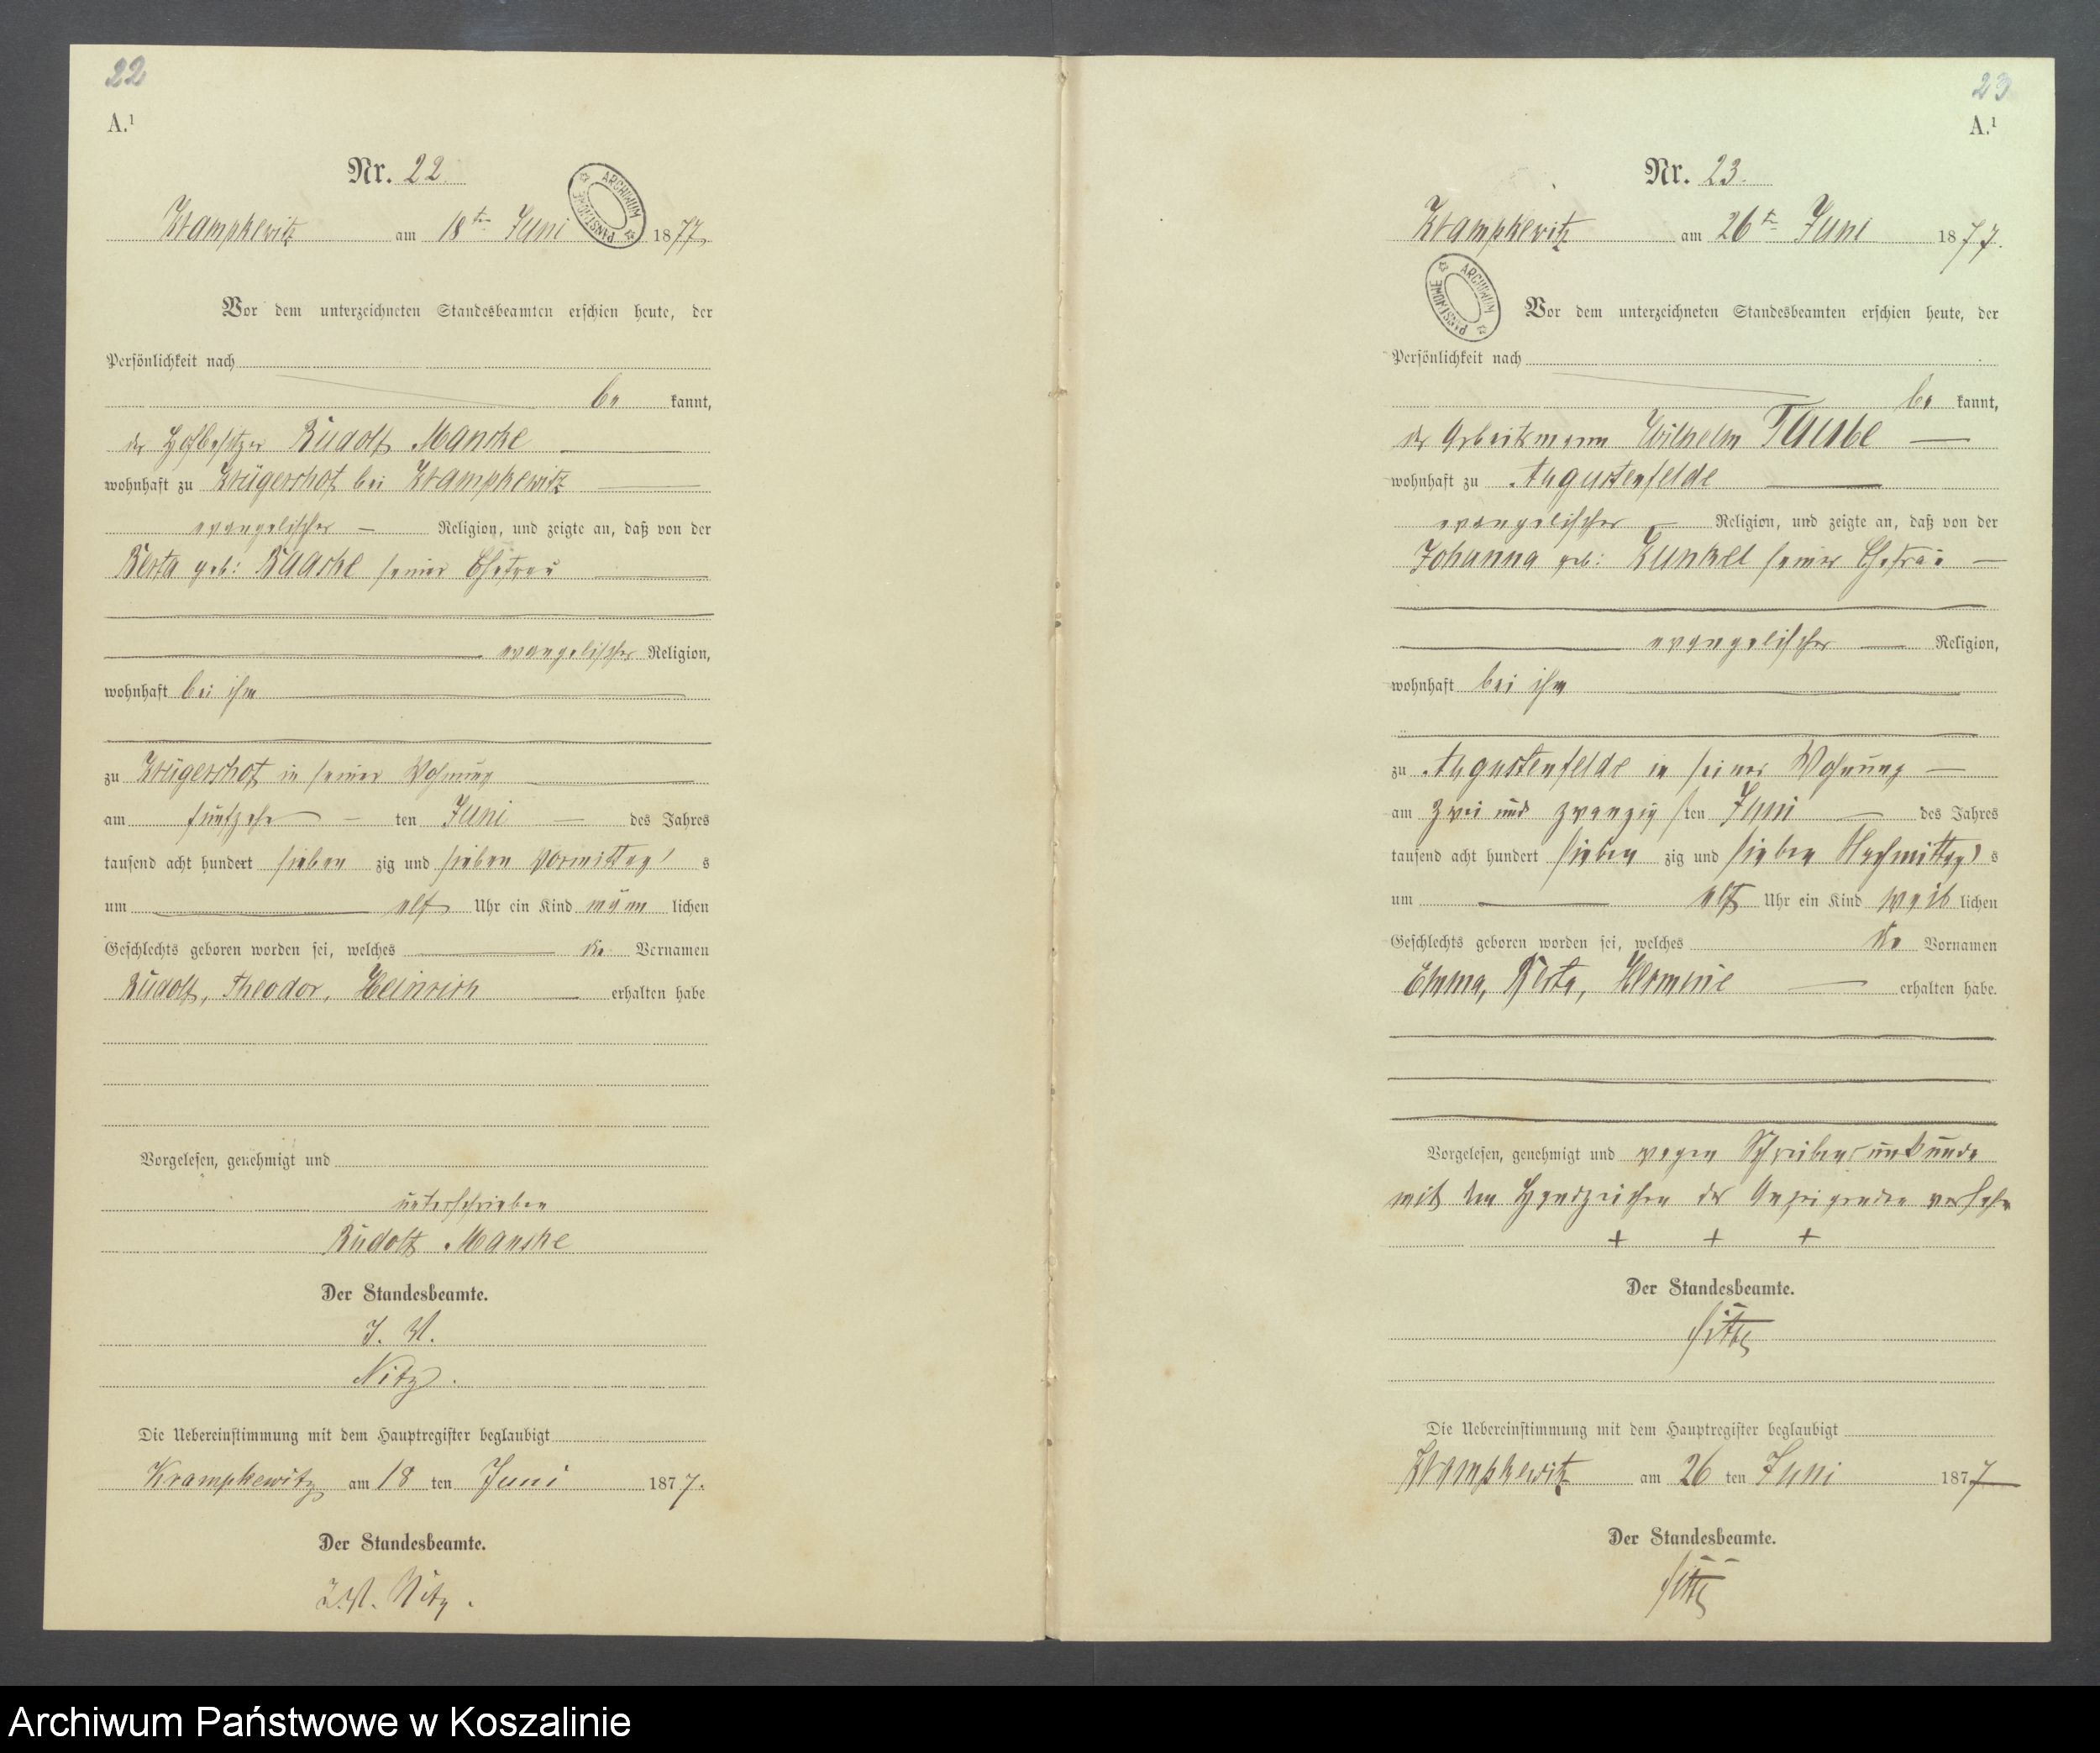 22
A.¹
Nr. 22.
Krampkewitz am 18ten Juni 1877.
ARCHIWUM PAŃSTWOWE
Vor dem unterzeichneten Standesbeamten erschien heute, der
Persönlichkeit nach
be kannt,
der Hofbesitzer Rudolf Manske
wohnhaft zu Krügershof bei Krampkewitz
evangelischer Religion, und zeigte an, daß von der
Berta geb: Raaske seiner Ehefrau
evangelischer Religion,
wohnhaft bei ihm
zu Krügershof in seiner Wohnung
am fünfzehn ten Juni des Jahres
tausend acht hundert sieben zig und sieben Vormittag s
um elf Uhr ein Kind männ lichen
Geschlechts geboren worden sei, welches die Vornamen
Rudolf, Theodor, Heinrich erhalten habe
Vorgelesen, genehmigt und
unterschrieben
Rudolf Manske
Der Standesbeamte.
J. V.
Nitz.
Die Uebereinstimmung mit dem Hauptregister beglaubigt
Krampkewitz am 18 ten Juni 1877.
Der Standesbeamte.
J. V. Nitz.
23
A.¹
Nr. 23.
Krampkewitz am 26ten Juni 1877.
ARCHIWUM PAŃSTWOWE
Vor dem unterzeichneten Standesbeamten erschien heute, der
Persönlichkeit nach
be kannt,
der Arbeitsmann Wilhelm Taube
wohnhaft zu Augustenfelde
evangelischer Religion, und zeigte an, daß von der
Johanna geb: Kunkel seiner Ehefrau
evangelischer Religion,
wohnhaft bei ihm
zu Augustenfelde in seiner Wohnung
am zwei und zwanzig sten Juni des Jahres
tausend acht hundert sieben zig und sieben Nachmittag s
um elf Uhr ein Kind weib lichen
Geschlechts geboren worden sei, welches die Vornamen
Emma, Berta, Hermine erhalten habe.
Vorgelesen, genehmigt und wegen Schreibensunkunde
mit dem Handzeichen des Anzeigenden versehen
+ + +
Der Standesbeamte.
Die Uebereinstimmung mit dem Hauptregister beglaubigt
Krampkewitz am 26 ten Juni 1877
Der Standesbeamte.
Archiwum Państwowe w Koszalinie